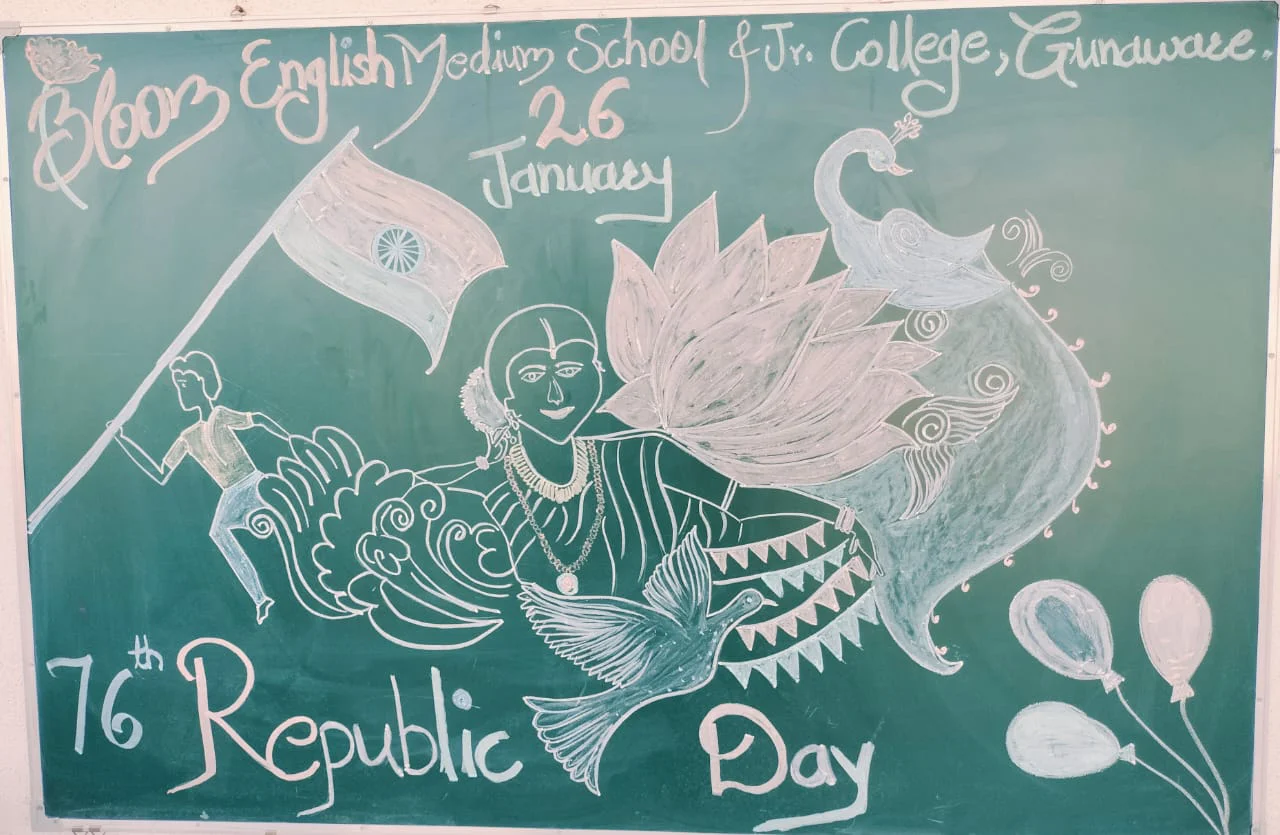 Bloom English Medium School & Jr. College, Gunaware.
26
January
76th Republic Day